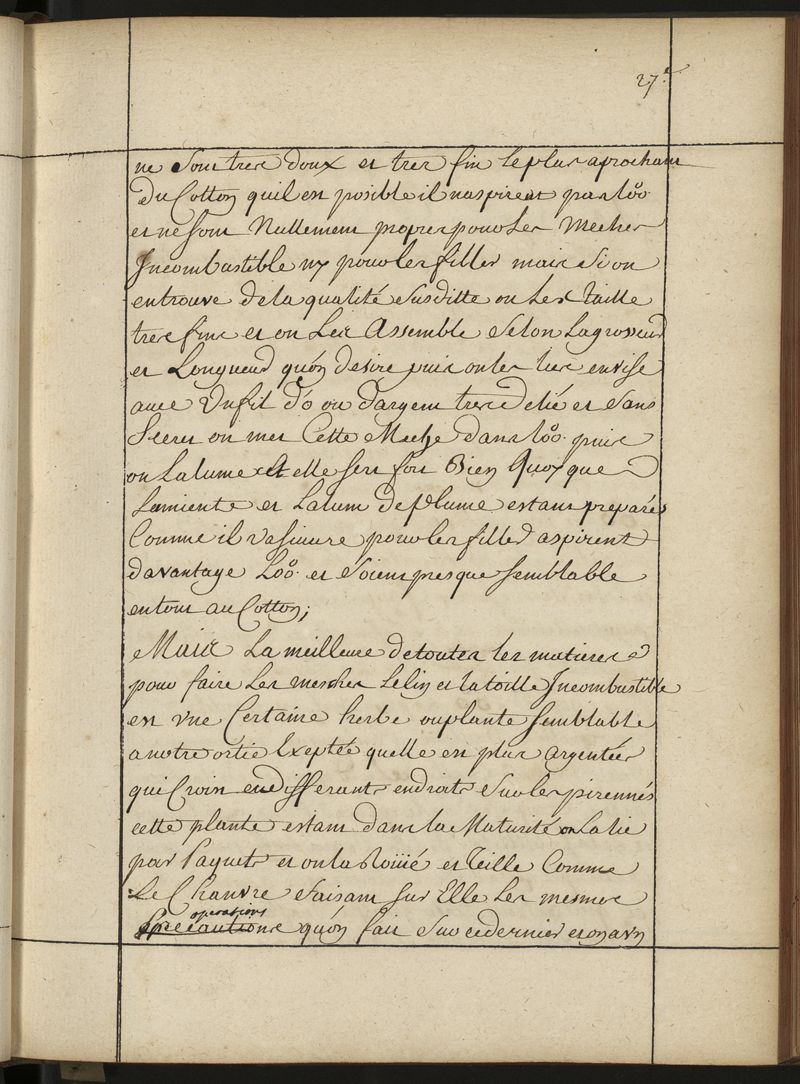 27.e
ne sont tres doux et tres fin le plus aprochant
du Cotton quil est posible il naspirent pas loô.
et ne sont Nullement propres pour les Meches
Incombustible ny pour les filler mais Si on
en trouve de la qualité Susditte on les taille
tres fine et on Les Assemble Selon La grosseur
et Longueur qu'on desire puis on les lies ensise
avec Un fil d'o ou d'argent tres Delié et Sans
Serer on met Cette Meche Dans loô. puis
on Lalume et elle sert fort Bien Quoy que
Lamiente et Lalum de plume estans preparés
Comme il vasuivre pour les filler aspirent
davantage Loô. et soient presque semblable
en tout au Cotton;
Mais La meilleure de toutes les matieres
pour faire Les mesches Le lin et la toille Incombustible
est Une Certaine herbe ou plante semblable
a notre ortie Exeptée quelle est plus argentée
qui Croit en differants endroits Sur les pirennés
cette plante estant dans la Maturité on La lie
par Paquets et on la Roüié et teille Comme
Le Chanvre faisant sur Elle Les mesmes
operations
precautions qu'on fait Sur ce dernier et on a un